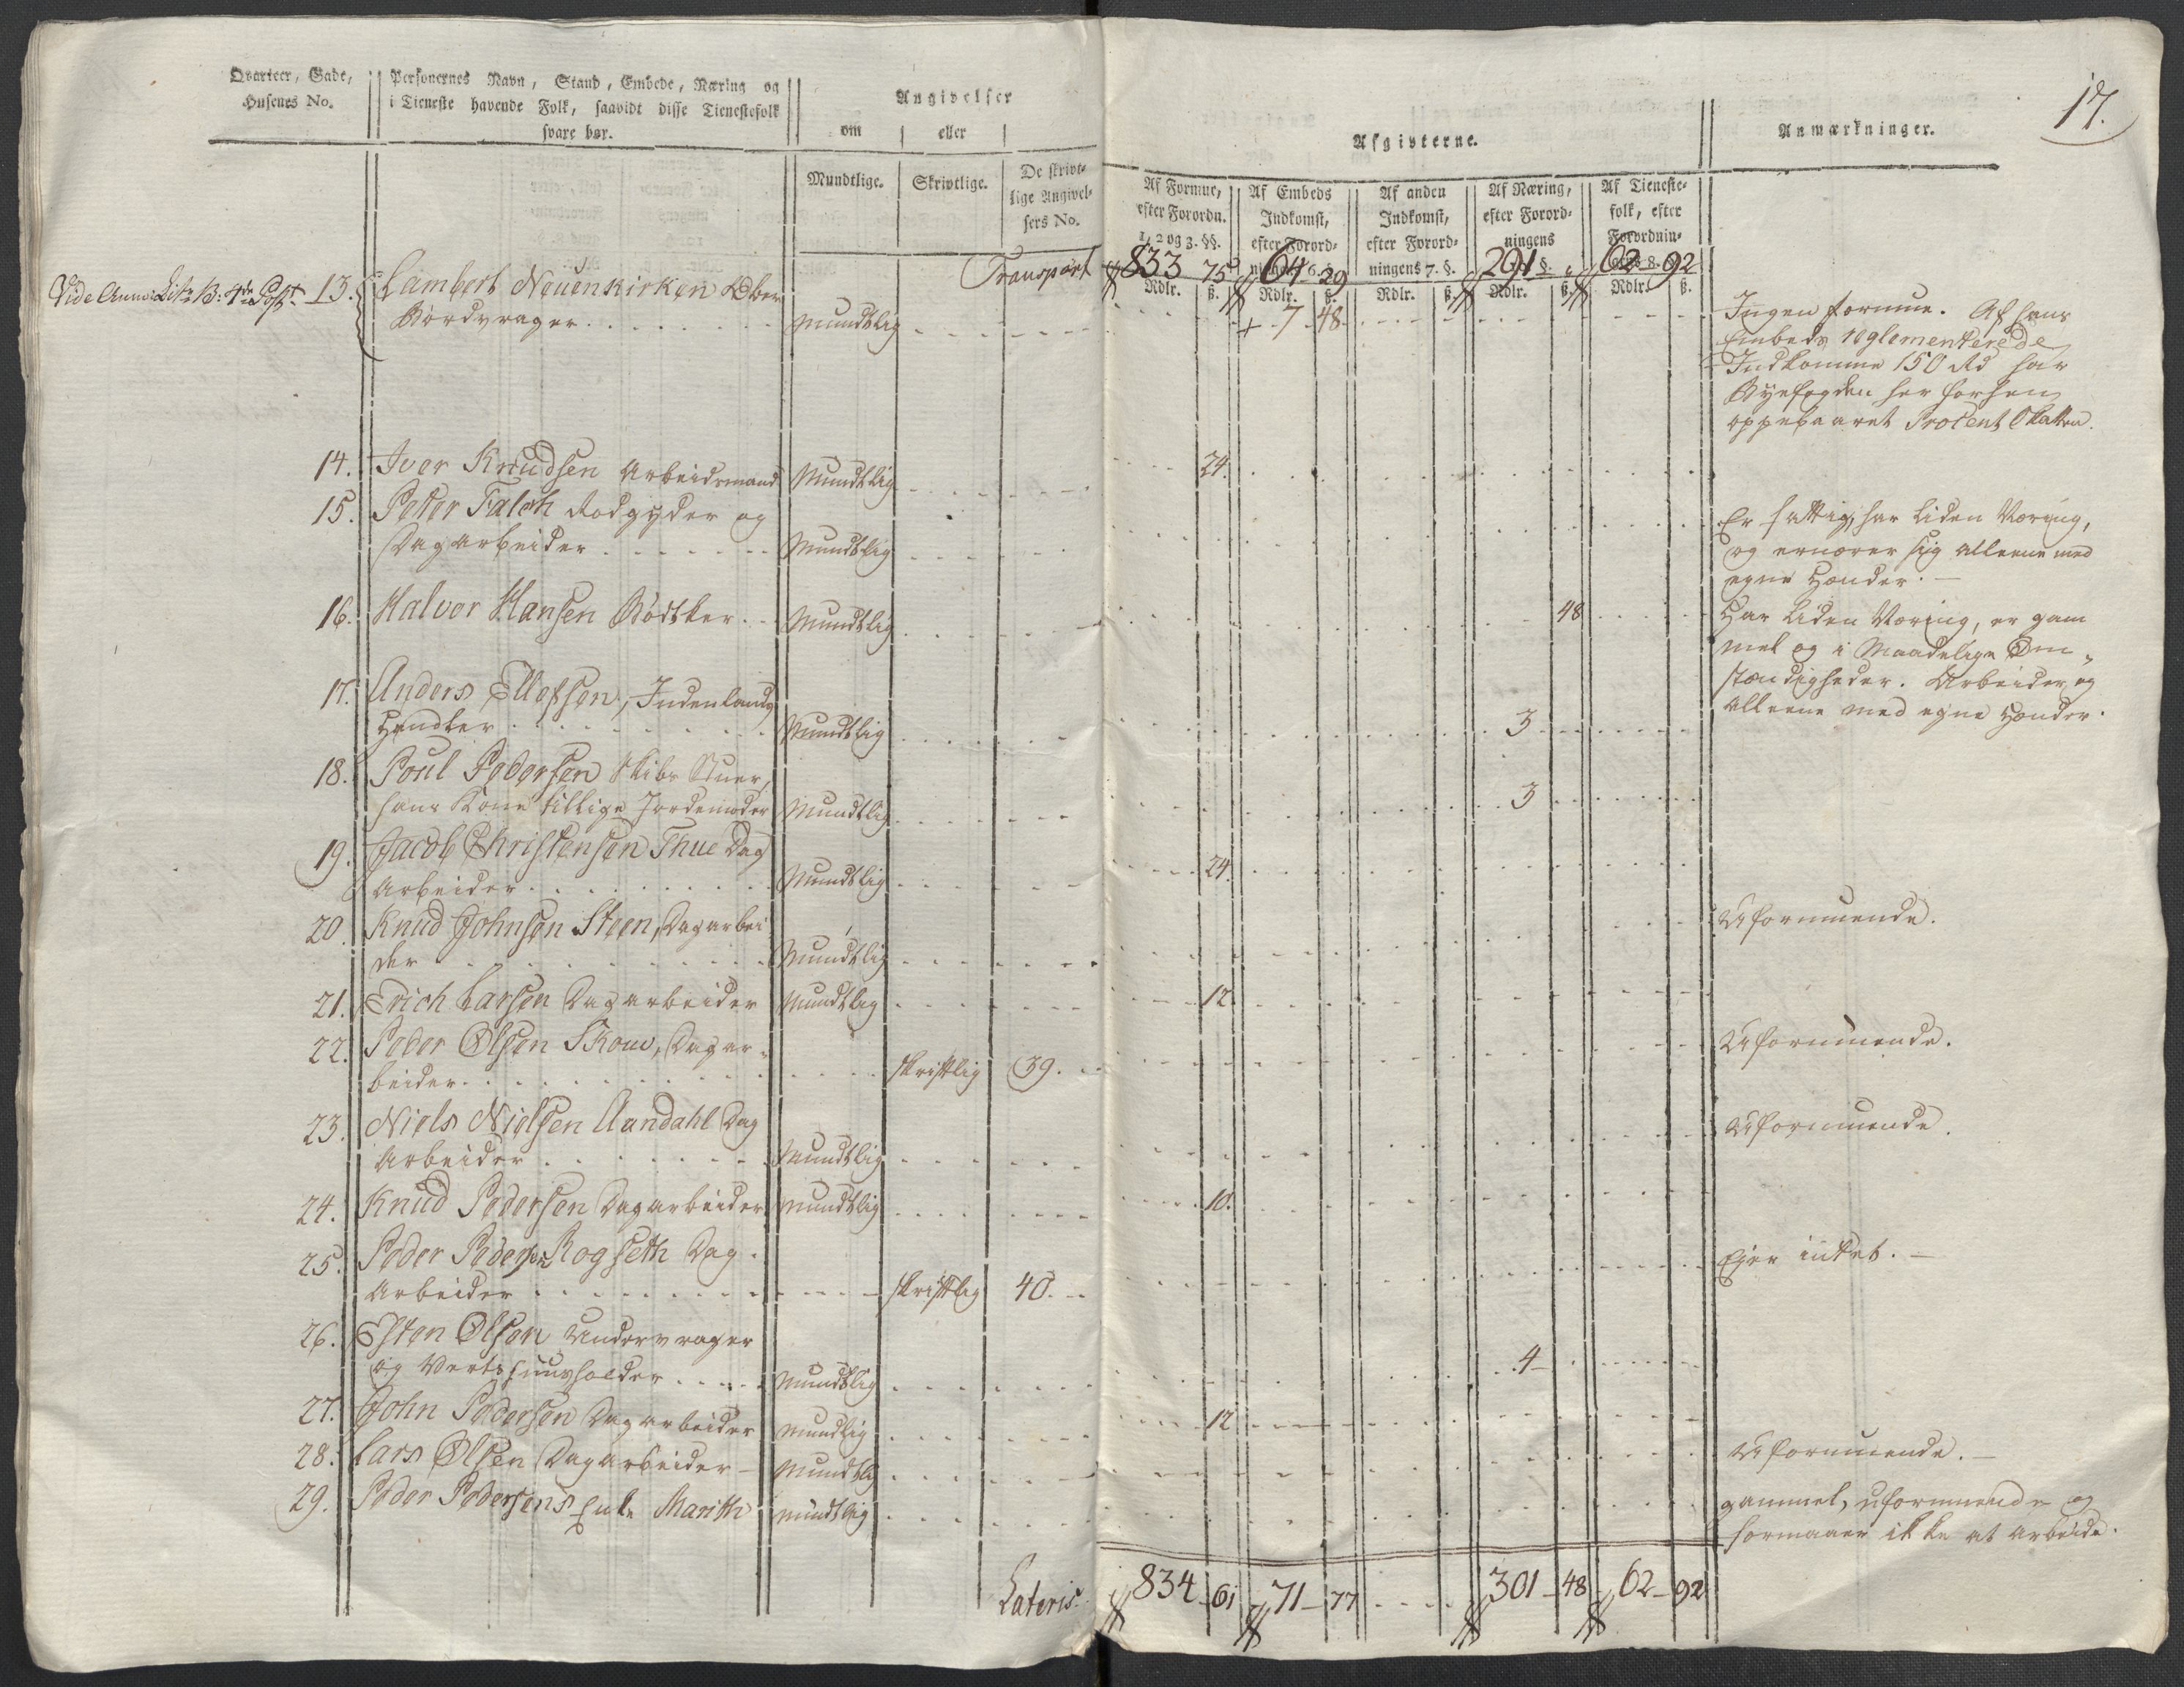 17.
Qvarteer, Gade,
Husenes No.
Personernes Navn, Stand, Embede, Næring og
i Tieneste havende Folk, saavidt disse Tienestefolk
svare bør.
Angivelser
om
eller
Mundtlige.
Skrivtlige.
De skrivt-
lige Angivel-
sers No.
Afgivterne.
Af Formue,
efter Forordn.
1, 2 og 3. §§.
Rdlr. ß.
Af Embeds
Indkomst,
efter Forord-
ningens 6. §.
Rdlr. ß.
Af anden
Indkomst,
efter Forord-
ningens 7. §.
Rdlr. ß.
Af Næring,
efter Forord-
ningens
§.
Rdlr. ß.
Af Tieneste-
folk, efter
Forordnin-
gens 8. §.
Rdlr. ß.
Anmærkninger.
Transport 833 75 64 29 291 " 62 92
Vide Anno: Litr: B: 4de Post 13. Lambert Neuenkirken Ober
Bordvrager mundtlig + 7 48
Ingen formue. Af hans
Embeds reglementerede
Indkomme 150 Rd har
Byefogden her forhen
oppebaaret Procent Skatten.
14. Iver Knudsen Arbeidsmand Mundtlig 24.
15. Peter Falch Rodgyder og
Dagarbeider Mundtlig
Er fattig, har liden Næring,
og ernærer sig alleene med
egne Hænder.
16. Halvor Hansen Bødtker Mundtlig 48
Har liden Næring, er gam
mel og i Maadelige Om
stændigheder. Arbeider og
alleene med egne Hænder.
17. Anders Ellefsen, Indenlands
Handler Mundtlig 3
18. Poul Pedersen Skibs Stuer,
hans Kone tillige Jordemoder Mundtlig 3
19. Jacob Christensen Thue Dag
Arbeider Mundtlig 24.
20. Knud Johnsen Steen, Dagarbei
der Mundtlig
Uformuende.
21. Erich Larsen Dagarbeider Mundtlig 12
22. Peder Olsen Skow, Dagar-
beider skriftlig 39.
Uformuende.
23. Niels Nielsen Aandahl Dag
Arbeider Mundtlig
Uformuende.
24. Knud Pedersen Dagarbeider mundtlig 10.
25. Peder Pedersen Rogseth Dag
Arbeider skriftlig 40.
Ejer intet.
26. Esten Olsen Undervrager
og Vertshuusholder Mundtlig 4
27. John Pedersen Dagarbeider mundlig 12
28. Lars Olsen Dagarbeider Mundtlig
Uformuende.
29. Peder Pedersens Enke Marith mündtlig
gammel, uformuende og
formaaer ikke at arbeide.
Lateris 834 61 71 77 301 48 62 92